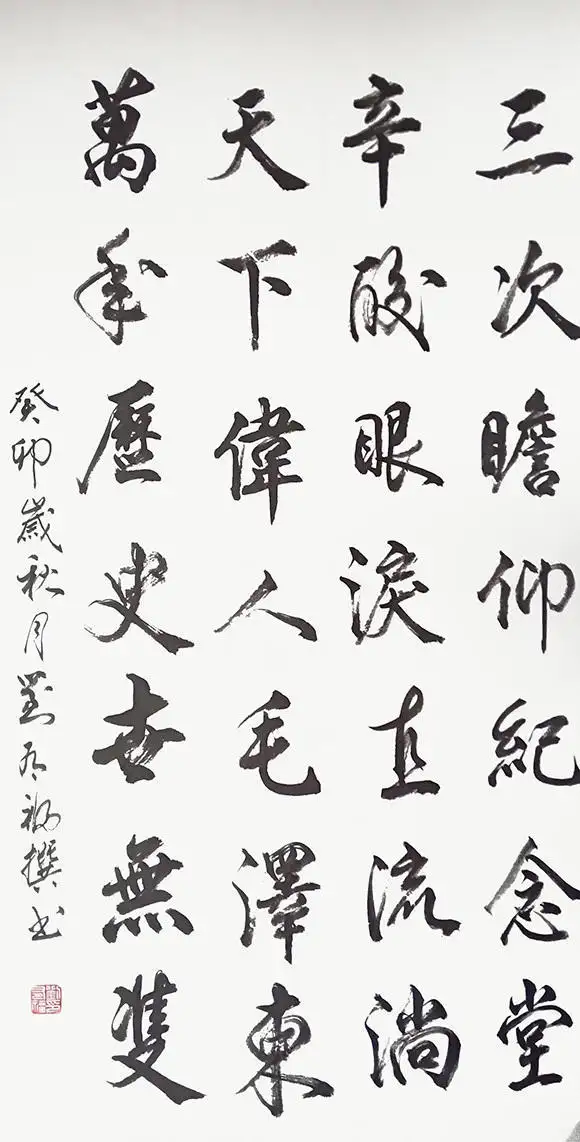 三次瞻仰紀念堂
辛酸眼淚直流淌
天下偉人毛澤東
萬年歷史世無雙
癸卯歲秋月劉有初撰书